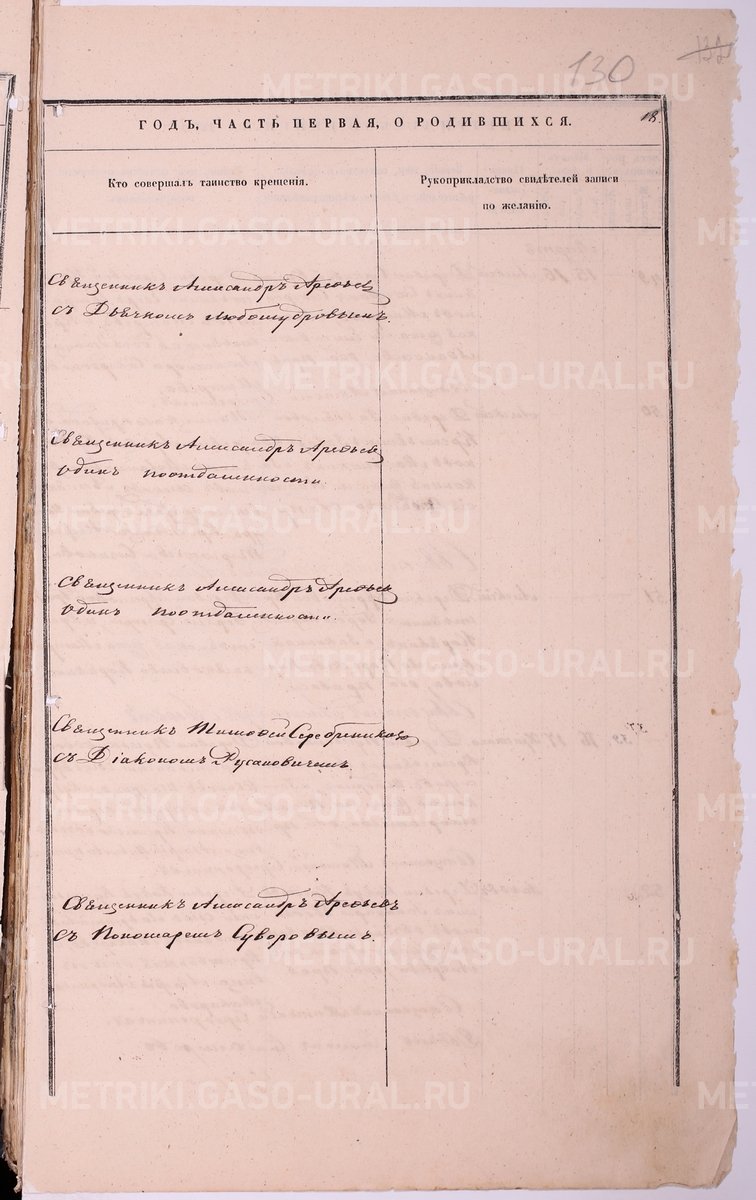 130
132
18.
ГОДЪ, ЧАСТЬ ПЕРВАЯ, О РОДИВШИХСЯ.
Кто совершалъ таинство крещенія.
Рукоприкладство свидѣтелей записи
по желанію.
Священникъ Александръ Арефьевъ
съ Дьячкомъ Любомудровымъ.
Священникъ Александръ Арефьевъ
одинъ поотдаленности
Священникъ Александръ Арефьевъ
одинъ поотдаленности.
Священникъ Тимофей Серебренниковъ
съ Діакономъ Русановичемъ.
Священникъ Александръ Арефьевъ
съ Пономаремъ Суворовымъ.
METRIKI.GASO-URAL.RU